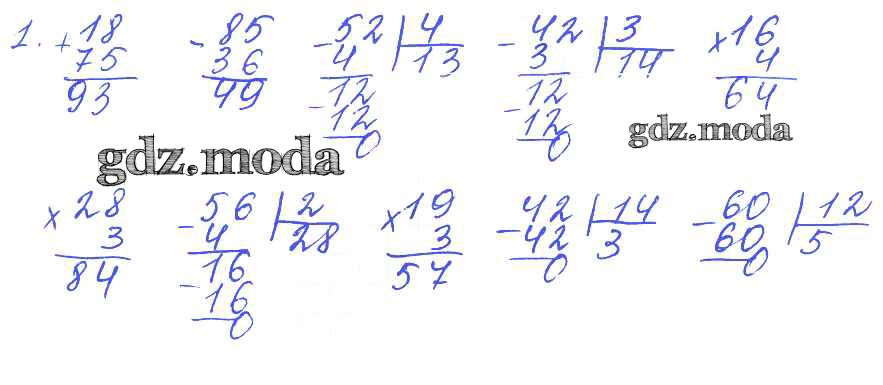 1. + 18 - 85 - 52 | 4 - 42 | 3 × 16
75 36 4 13 3 14 4
93 49 12 12 64
- 12 - 12
0 0
gdz.moda gdz.moda
× 28 - 56 | 2 × 19 - 42 | 14 - 60 | 12
3 4 28 3 42 3 60 5
84 16 57 0 0
- 16
0